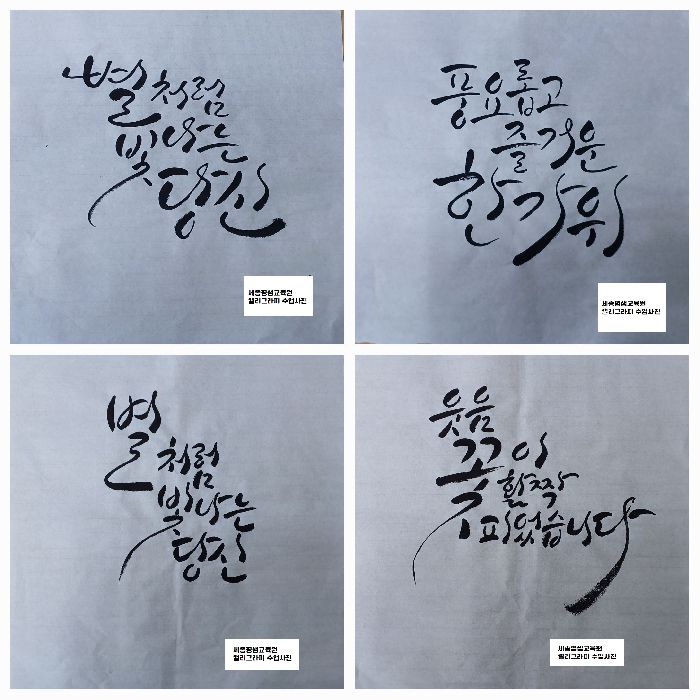 별처럼
빛나는
당신
세종평생교육원
캘리그라피 수업사진
풍요롭고
즐거운
한가위
세종평생교육원
캘리그라피 수업사진
별
처럼
빛나는
당신
세종평생교육원
캘리그라피 수업사진
웃음
꽃이
활짝
피었습니다
세종평생교육원
캘리그라피 수업사진